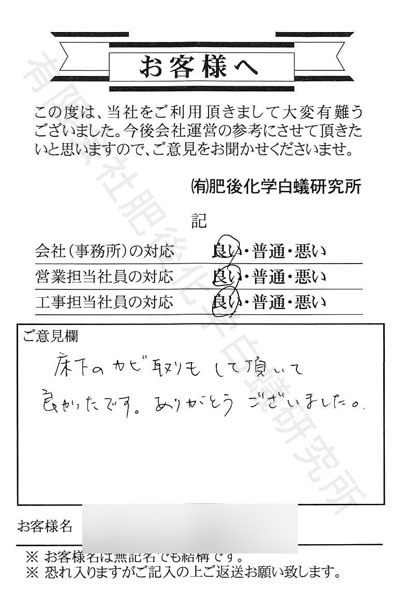 お客様へ
この度は、当社をご利用頂きまして大変有難う
ございました。今後会社運営の参考にさせて頂きた
いと思いますので、ご意見をお聞かせくださいませ。
㈲肥後化学白蟻研究所
記
会社(事務所)の対応 良い・普通・悪い
営業担当社員の対応 良い・普通・悪い
工事担当社員の対応 良い・普通・悪い
ご意見欄
床下のカビ取りも して頂いて
良かったです。ありがとう ございました。
お客様名
※ お客様名は無記名でも結構です。
※ 恐れ入りますがご記入の上ご返送お願い致します。
有限会社肥後化学白蟻研究所